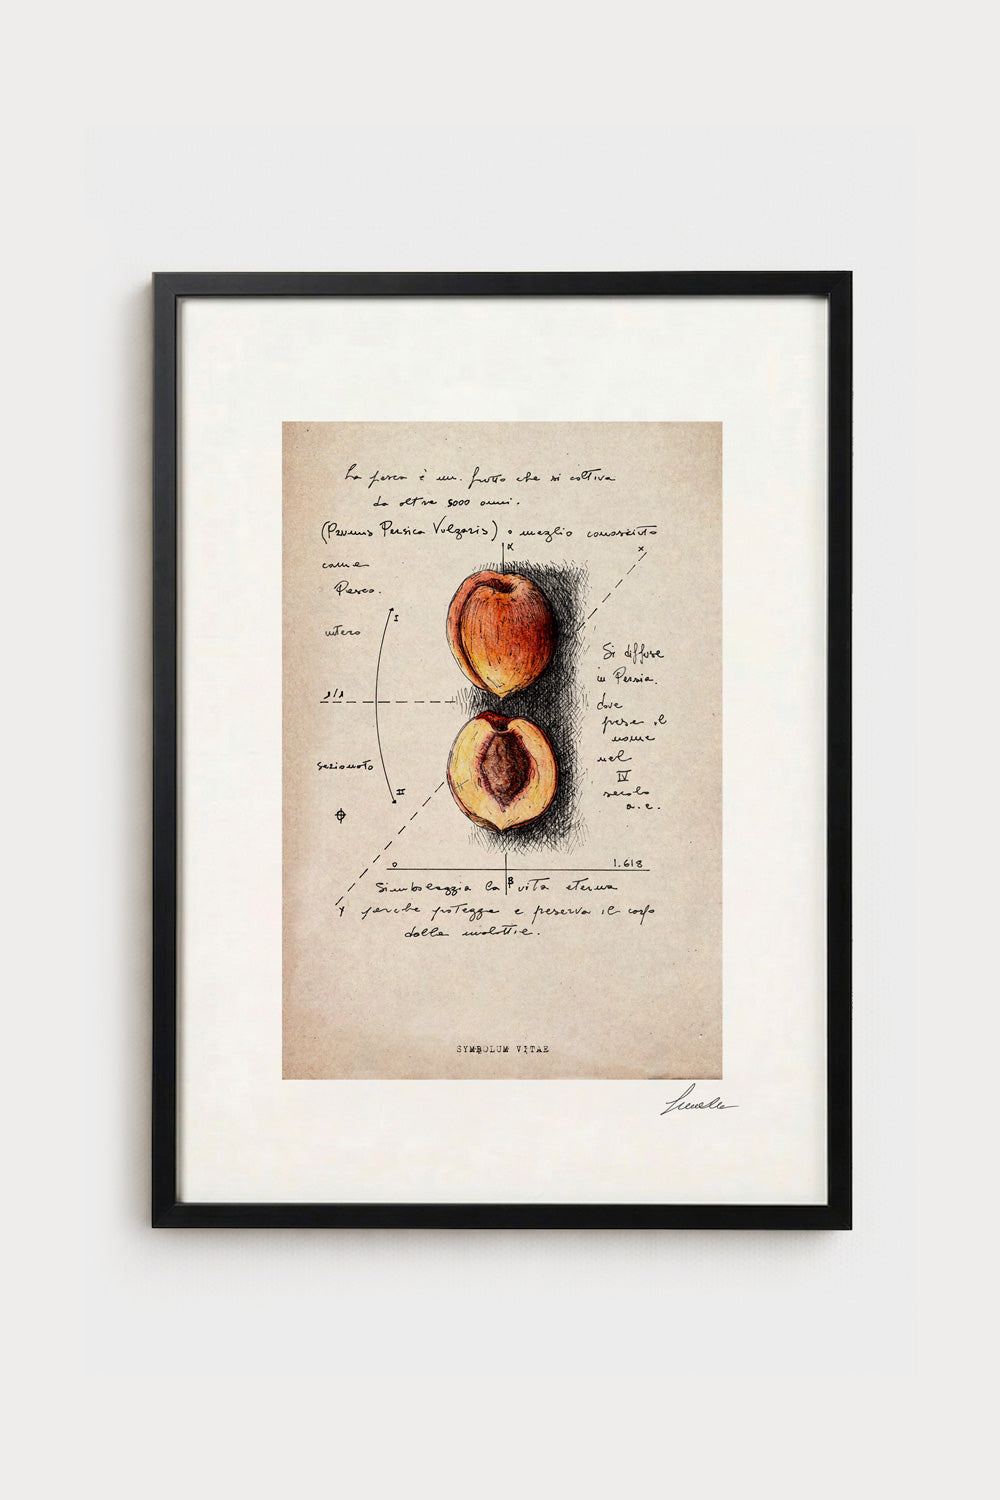 La pesca è un. frutto che si coltiva
da oltre 5000 anni.
(Prunus Persica Vulgaris) o meglio conosciuto
come
Pesco.
α
x
I
intero
Si diffuse
in Persia.
1/1
dove
prese il
nome
nel
IV
secolo
a.c.
sezionato
II
0
1.618
β
Simboleggia la vita eterna
y
perche protegge e preserva il corpo
dalle malattie.
SYMBOLUM VITAE